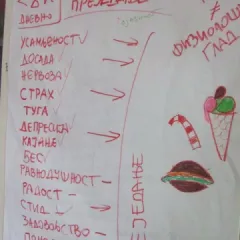 ДНЕВНО
УСАМЉЕНОСТ
ДОСАДА
НЕРВОЗА
СТРАХ
ТУГА
ДЕПРЕСИЈА
КАЈАЊЕ
БЕС
РАВНОДУШНОСТ -
РАДОСТ -
СТИД
ЗАДОВОЉСТВО
ЈЕДАЊЕ
≠
ФИЗИОЛОШКА
ГЛАД